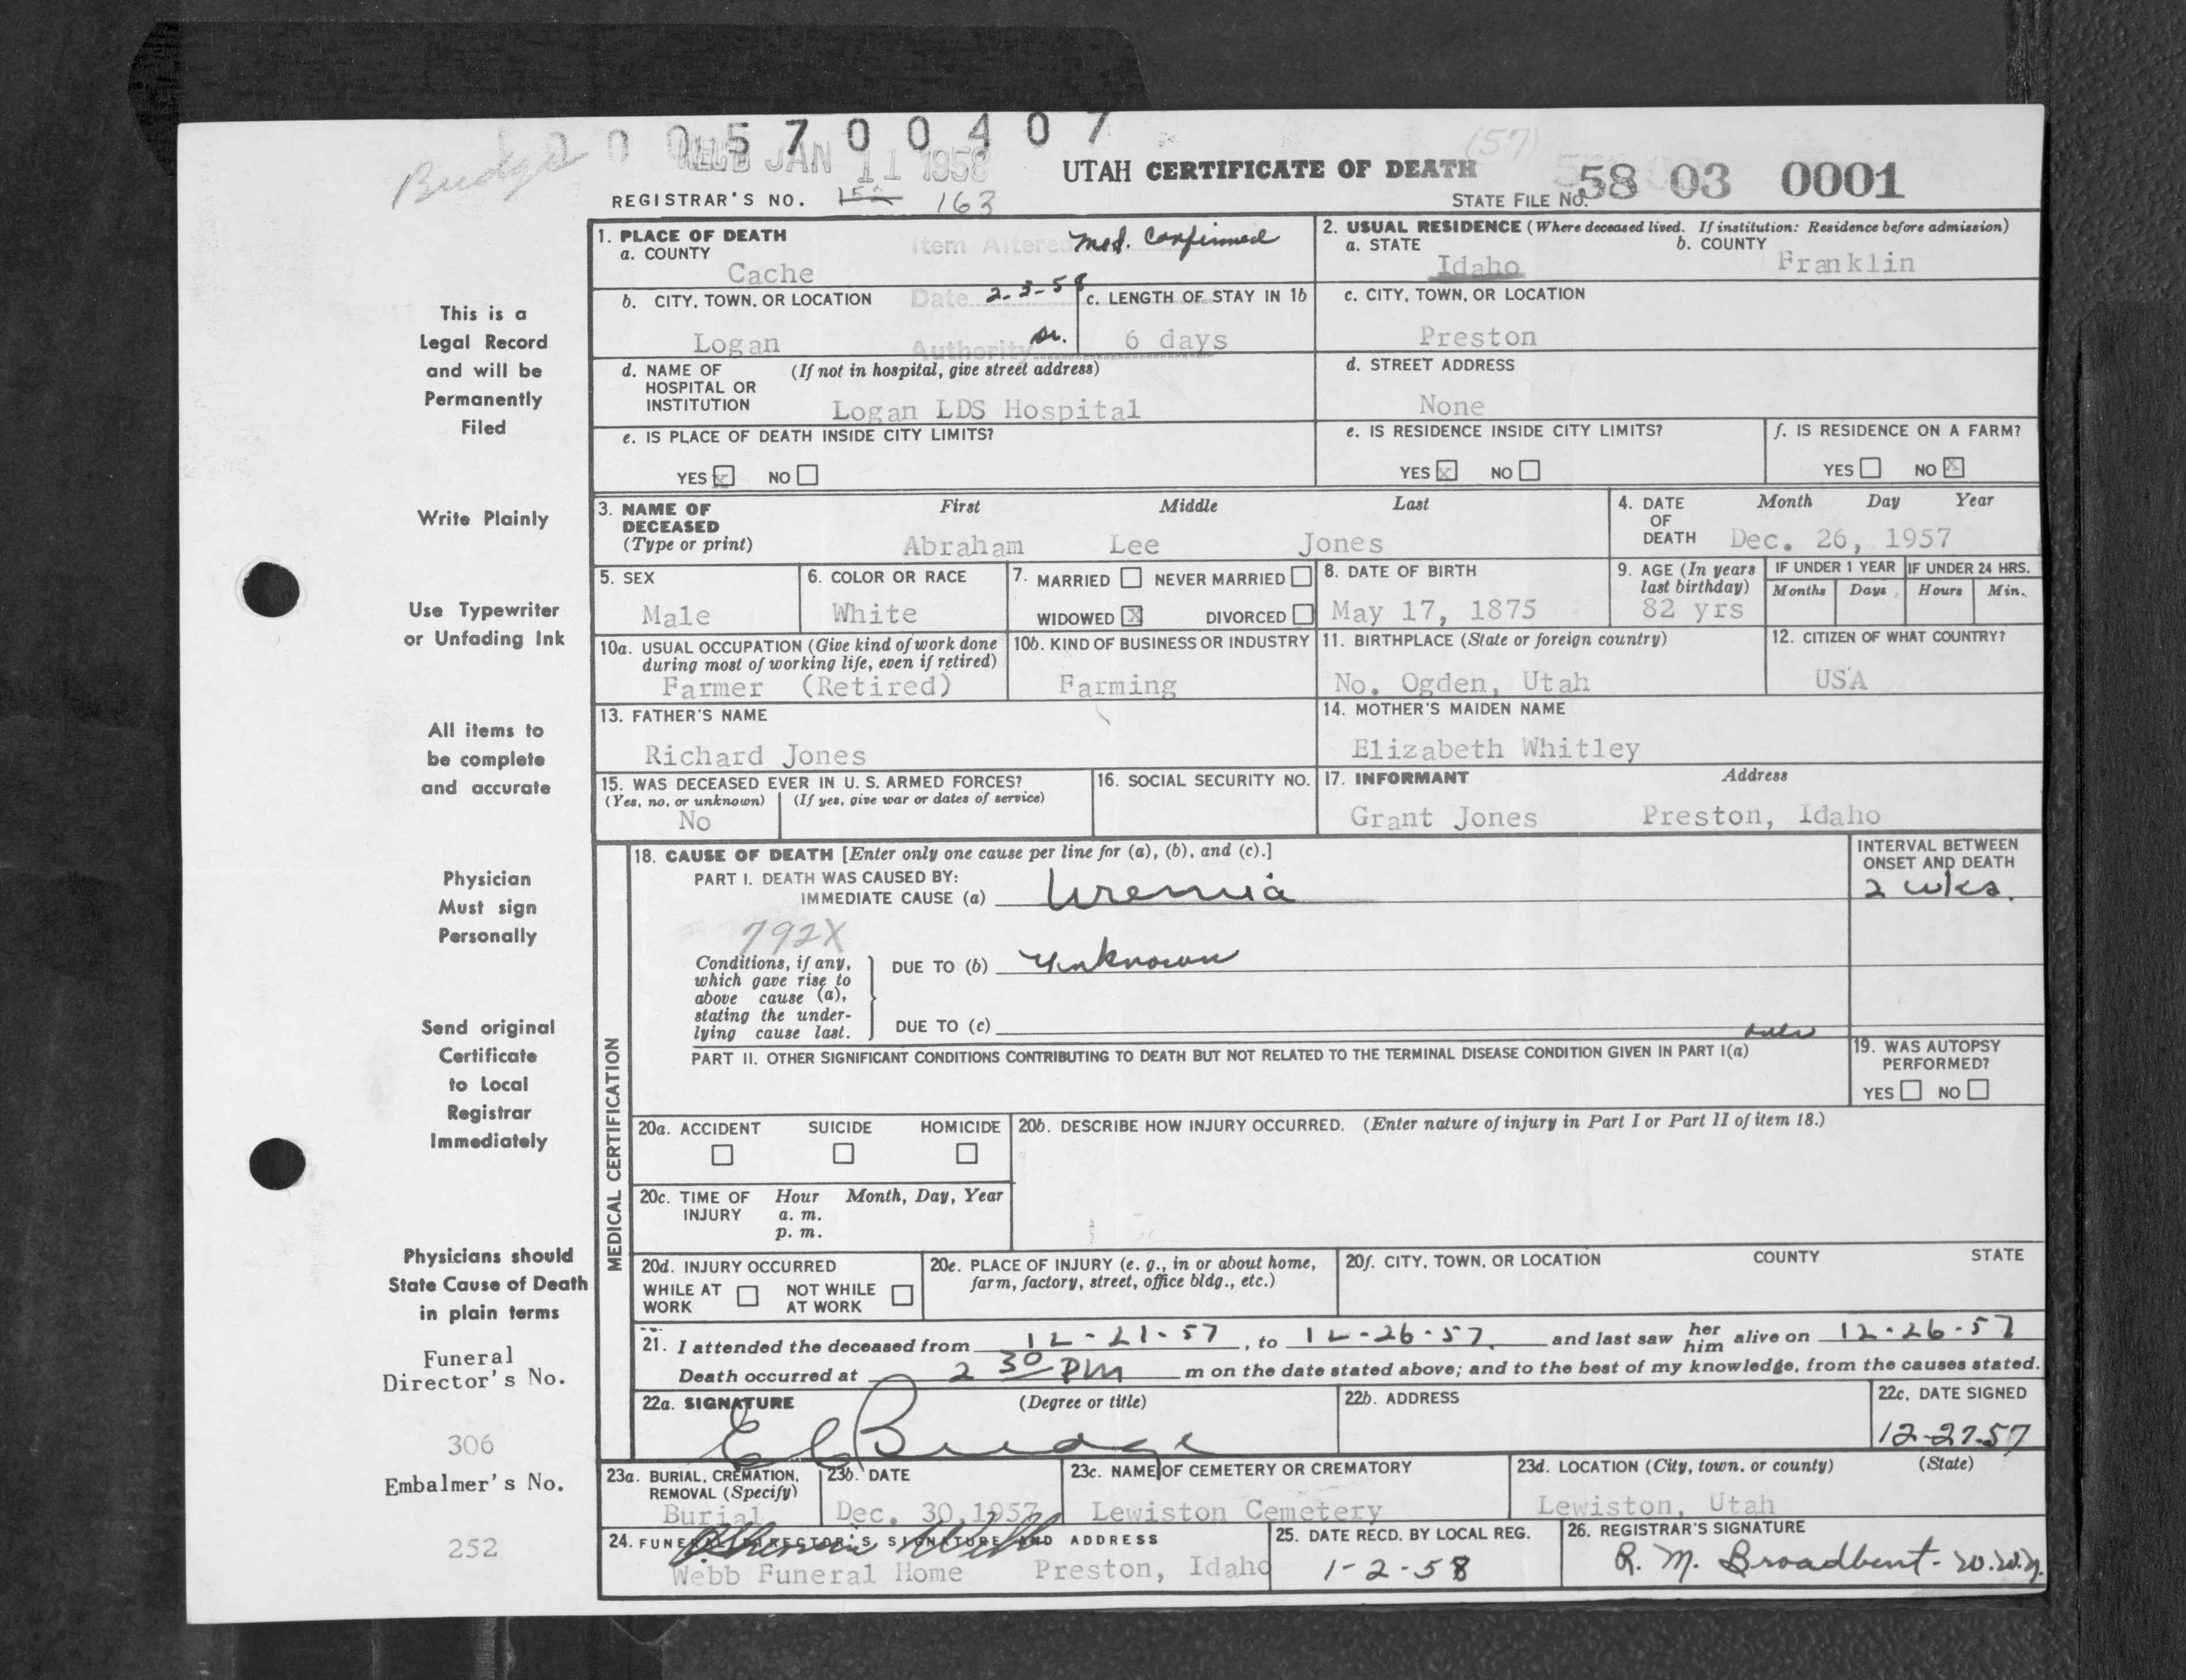 Budge 0 0 5 7 0 0 4 0 7
REC'D JAN 11 1958
(57)
UTAH CERTIFICATE OF DEATH
REGISTRAR'S NO. 152 163
STATE FILE NO. 58 03 0001
1. PLACE OF DEATH
a. COUNTY
Cache
Item Altered Med. Confirmed
2. USUAL RESIDENCE (Where deceased lived. If institution: Residence before admission)
a. STATE b. COUNTY
Idaho Franklin
b. CITY, TOWN, OR LOCATION
Logan
Date 2-3-58
Authority
c. LENGTH OF STAY IN 1b
6 days
c. CITY, TOWN, OR LOCATION
Preston
d. NAME OF (If not in hospital, give street address)
HOSPITAL OR
INSTITUTION Logan LDS Hospital
d. STREET ADDRESS
None
e. IS PLACE OF DEATH INSIDE CITY LIMITS?
YES X NO
e. IS RESIDENCE INSIDE CITY LIMITS?
YES X NO
f. IS RESIDENCE ON A FARM?
YES NO X
3. NAME OF First Middle Last
DECEASED
(Type or print) Abraham Lee Jones
4. DATE Month Day Year
OF
DEATH Dec. 26, 1957
5. SEX
Male
6. COLOR OR RACE
White
7. MARRIED NEVER MARRIED
WIDOWED X DIVORCED
8. DATE OF BIRTH
May 17, 1875
9. AGE (In years
last birthday)
82 yrs
IF UNDER 1 YEAR IF UNDER 24 HRS.
Months Days Hours Min.
10a. USUAL OCCUPATION (Give kind of work done
during most of working life, even if retired)
Farmer (Retired)
10b. KIND OF BUSINESS OR INDUSTRY
Farming
11. BIRTHPLACE (State or foreign country)
No. Ogden, Utah
12. CITIZEN OF WHAT COUNTRY?
USA
13. FATHER'S NAME
Richard Jones
14. MOTHER'S MAIDEN NAME
Elizabeth Whitley
15. WAS DECEASED EVER IN U. S. ARMED FORCES?
(Yes, no, or unknown) (If yes, give war or dates of service)
No
16. SOCIAL SECURITY NO.
17. INFORMANT Address
Grant Jones Preston, Idaho
MEDICAL CERTIFICATION
18. CAUSE OF DEATH [Enter only one cause per line for (a), (b), and (c).]
PART I. DEATH WAS CAUSED BY:
IMMEDIATE CAUSE (a) Uremia
INTERVAL BETWEEN
ONSET AND DEATH
2 wks.
792X
Conditions, if any,
which gave rise to
above cause (a),
stating the under-
lying cause last.
DUE TO (b) Unknown
DUE TO (c)
PART II. OTHER SIGNIFICANT CONDITIONS CONTRIBUTING TO DEATH BUT NOT RELATED TO THE TERMINAL DISEASE CONDITION GIVEN IN PART I(a)
19. WAS AUTOPSY
PERFORMED?
YES NO
20a. ACCIDENT SUICIDE HOMICIDE
20b. DESCRIBE HOW INJURY OCCURRED. (Enter nature of injury in Part I or Part II of item 18.)
20c. TIME OF Hour Month, Day, Year
INJURY a. m.
p. m.
20d. INJURY OCCURRED
WHILE AT NOT WHILE
WORK AT WORK
20e. PLACE OF INJURY (e. g., in or about home,
farm, factory, street, office bldg., etc.)
20f. CITY, TOWN, OR LOCATION COUNTY STATE
21. I attended the deceased from 12-21-57, to 12-26-57. and last saw her him alive on 12-26-57
Death occurred at 2 30 PM m on the date stated above; and to the best of my knowledge, from the causes stated.
22a. SIGNATURE (Degree or title)
E C Budge
22b. ADDRESS
22c. DATE SIGNED
12-27-57
23a. BURIAL, CREMATION,
REMOVAL (Specify)
Burial
23b. DATE
Dec. 30, 1957
23c. NAME OF CEMETERY OR CREMATORY
Lewiston Cemetery
23d. LOCATION (City, town, or county) (State)
Lewiston, Utah
24. FUNERAL DIRECTOR'S SIGNATURE AND ADDRESS
Webb
Webb Funeral Home Preston, Idaho
25. DATE RECD. BY LOCAL REG.
1-2-58
26. REGISTRAR'S SIGNATURE
R. M. Broadbent
This is a
Legal Record
and will be
Permanently
Filed
Write Plainly
Use Typewriter
or Unfading Ink
All items to
be complete
and accurate
Physician
Must sign
Personally
Send original
Certificate
to Local
Registrar
Immediately
Physicians should
State Cause of Death
in plain terms
Funeral
Director's No.
306
Embalmer's No.
252